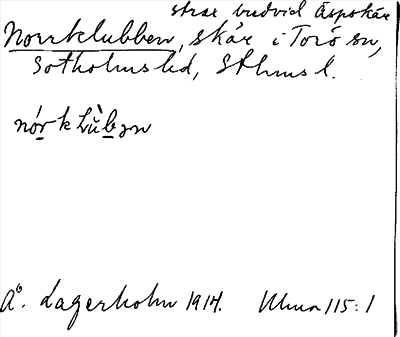 strax bredvid Äspskär
Norrklubben, skär i Torö sn,
Sotholms hd, Sthms l.
nórk lù̀bən
Å. Lagerholm 1914.